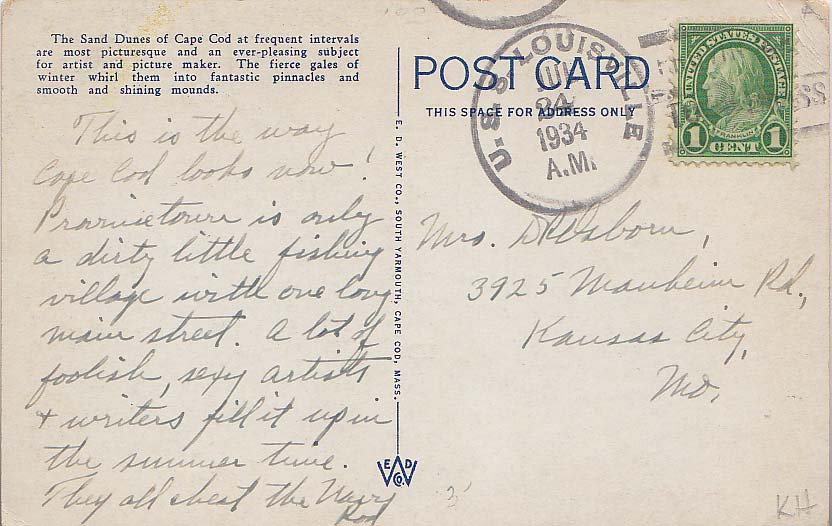 The Sand Dunes of Cape Cod at frequent intervals
are most picturesque and an ever-pleasing subject
for artist and picture maker. The fierce gales of
winter whirl them into fantastic pinnacles and
smooth and shining mounds.
This is the way
Cape Cod looks now!
Provincetown is only
a dirty little fishing
village with one long
main street. A lot of
foolish, sexy artists
& writers fill it up in
the summer time.
They all cheat the Navy
Rod
E. D. WEST CO., SOUTH YARMOUTH, CAPE COD, MASS.
E D
W
CO.
POST CARD
THIS SPACE FOR ADDRESS ONLY
U.S.S. LOUISVILLE
JUL
24
1934
A.M.
UNITED STATES POSTAGE
FRANKLIN
1 CENT 1
Mrs. Osborn,
3925 Manheim Rd.,
Kansas City,
Mo.
KH